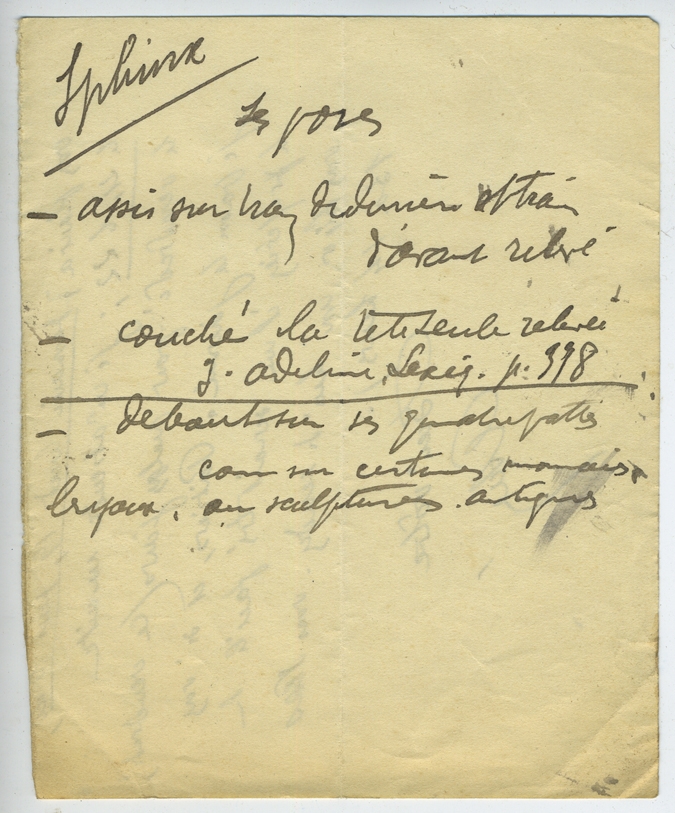 Sphinx
Ses poses
- assis sur train de derrière et train
d'avant relevé
- couché la tête seule relevée
J. Adeline, Lexiq. p. 398
- debout sur ses quatre pattes
comme sur certaines monnaies,
bijoux, ou sculptures antiques